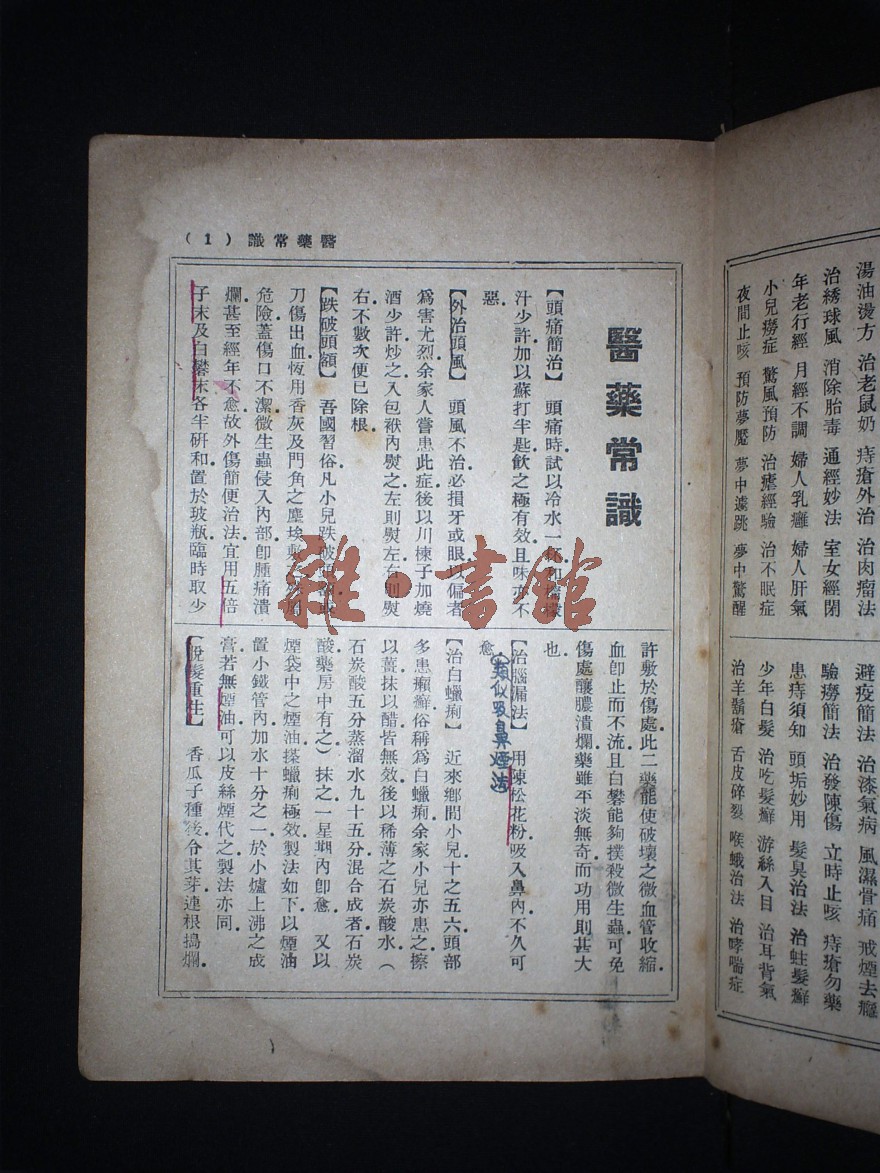 湯油燙方　治老鼠奶　痔瘡外治　治肉瘤法
治綉球風　消除胎毒　通經妙法　室女經閉
年老行經　月經不調　婦人乳癰　婦人肝氣
小兒癆症　驚風預防　治瘧經驗　治不眠症
夜間止咳　預防夢魘　夢中遽跳　夢中驚醒
避疫簡法　治漆氣病　風濕骨痛　戒煙去癮
驗癆簡法　治發陳傷　立時止咳　痔瘡勿藥
患痔須知　頭垢妙用　髮臭治法　治蛀髮癬
少年白髮　治吃髮癬　游絲入目　治耳背氣
治羊鬍瘡　舌皮碎裂　喉蛾治法　治哮喘症
醫藥常識（1）
醫藥常識
【頭痛簡治】　頭痛時試以冷水一杯和檸檬
汁少許加以蘇打半匙飲之極有效且味亦不
惡．
【外治頭風】　頭風不治必損牙或眼以偏者
爲害尤烈．余家人嘗患此症後以川楝子加燒
酒少許炒之入包袱內熨之左則熨左右則熨
右．不數次便已除根．
【跌破頭額】　吾國習俗凡小兒跌破頭額或
刀傷出血恆用香灰及門角之塵埃敷
危險蓋傷口不潔微生蟲侵入內部．卽腫痛潰
爛．甚至經年不愈．故外傷簡便治法宜用五倍
子末及白礬末各半研和．置於玻瓶．臨時取少
許敷於傷處．此二藥能使破壞之微血管收縮．
血卽止而不流．且白礬能夠撲殺微生蟲．可免
傷處釀膿潰爛．藥雖平淡無奇．而功用則甚大
也．
【治腦漏法】　用陳松花粉吸入鼻內．不久可
愈．
(類似吸鼻煙法)
【治白蠟痢】　近來鄉間小兒十之五六頭部
多患癩癬．俗稱爲白蠟痢．余家小兒亦患之．擦
以薑抹以醋皆無效．後以稀薄之石炭酸水．（
石炭酸五分蒸溜水九十五分混合成者石炭
酸藥房中有之）抹之一星期內卽愈．　又以
煙袋中之煙油．搽蠟痢極效．製法如下．以煙油
置小鐵管內．加水十分之一．於小爐上沸之成
膏．若無煙油．可以皮絲煙代之．製法亦同．
【脫髮重生】　香瓜子種後．令其芽連根搗爛．
雜·書館